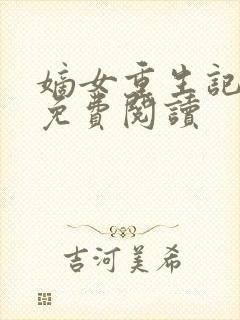 嫡女重生記
免費閱讀
吉河美希